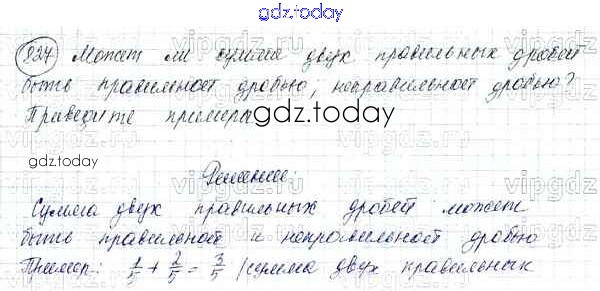 gdz.today
827 Может ли сумма двух правильных дробей
быть правильной дробью, неправильной дробью?
Приведите примеры.
gdz.today
gdz.today
Решение:
Сумма двух правильных дробей может
быть правильной и неправильной дробью
Пример: 1/5 + 2/5 = 3/5 /сумма двух правильных
vipgdz.ru
vipgdz.ru
vipgdz.ru